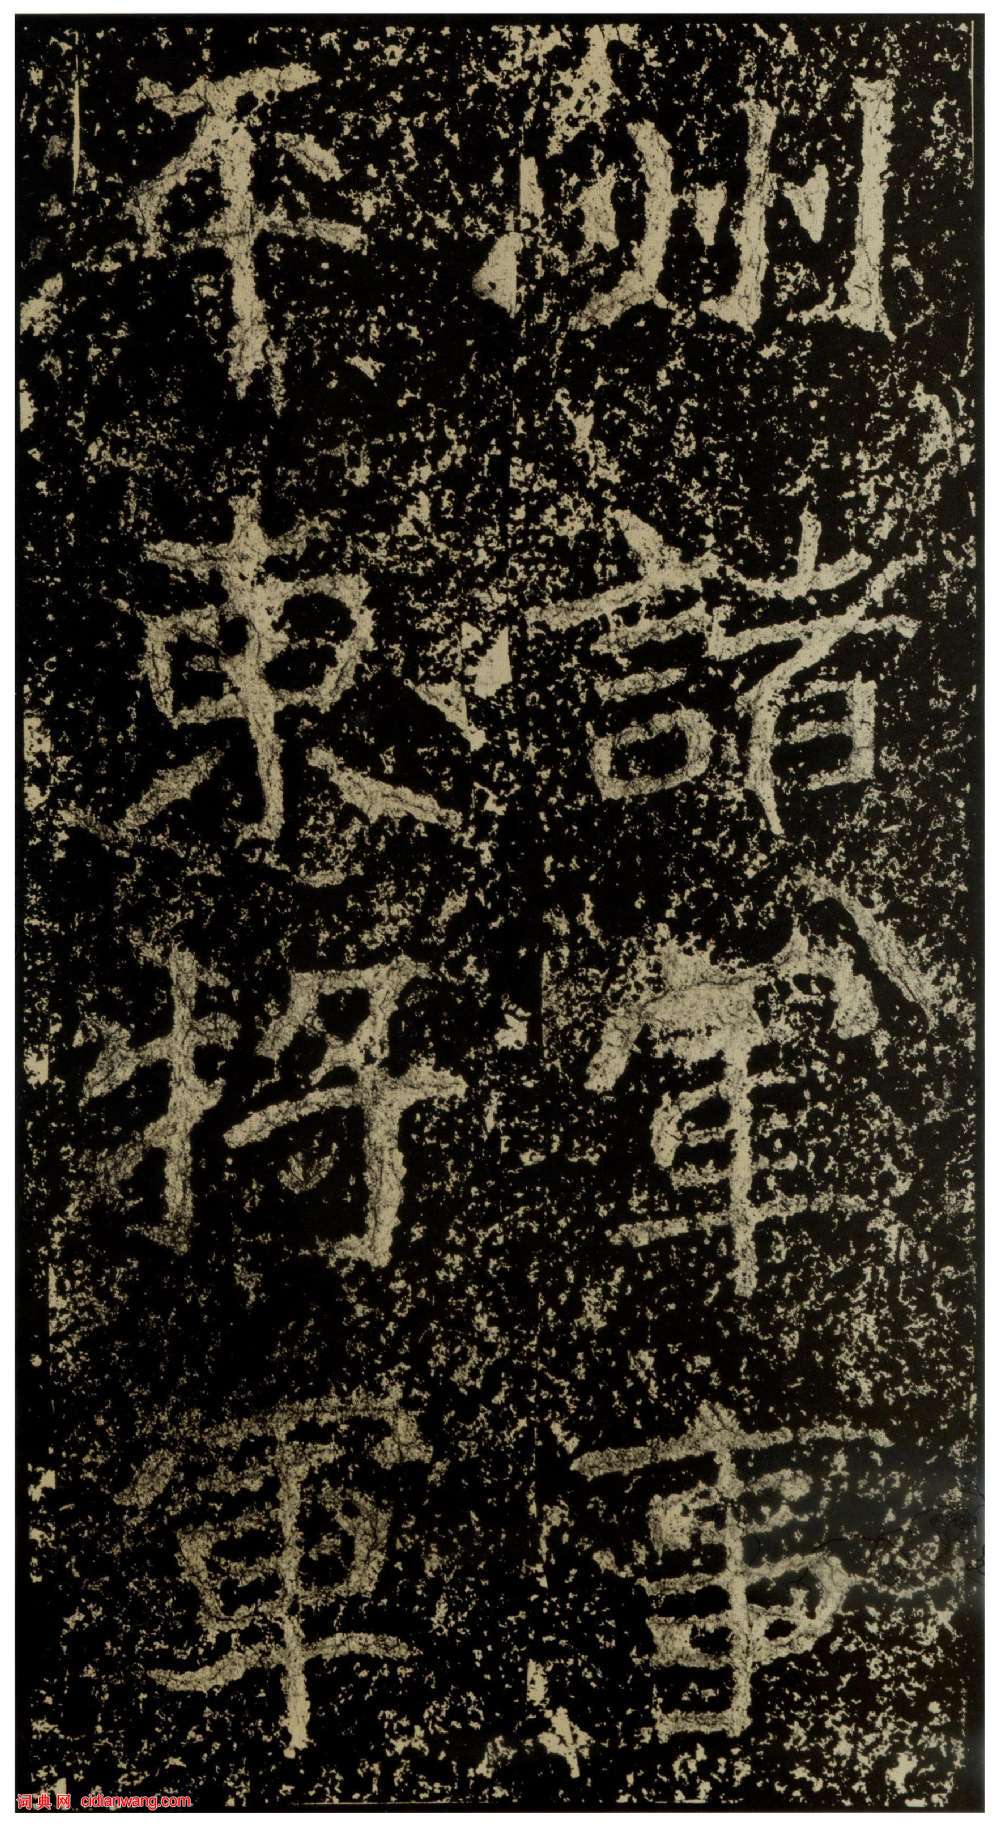 州諸軍事
平東將軍
词典网 cidianwang.com